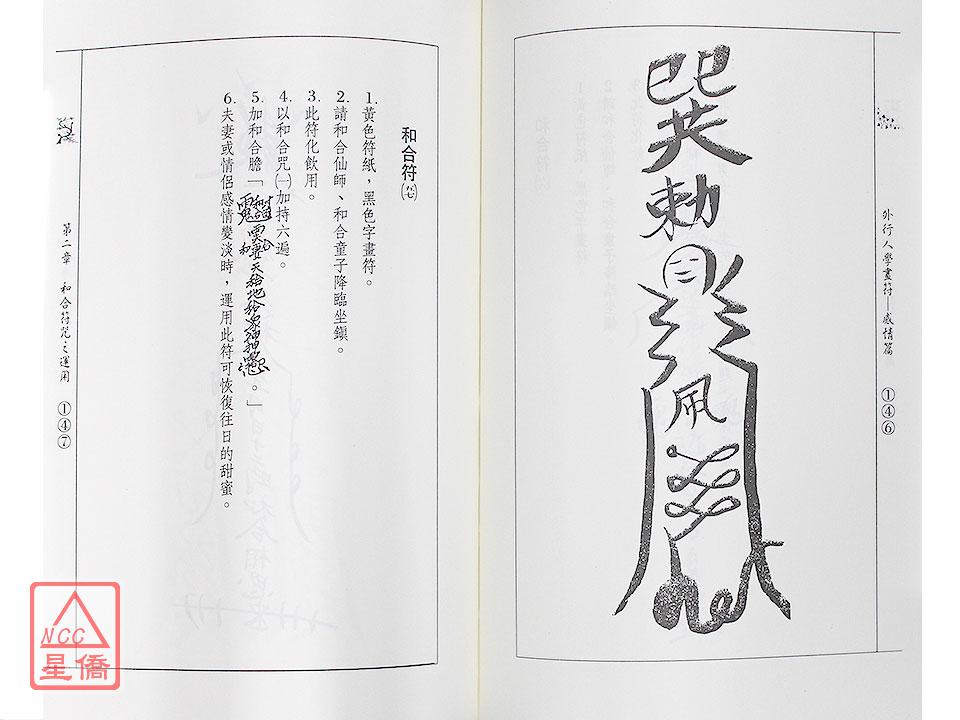 外行人學畫符—感情篇 ①④⑥
勅
和合符
1.黃色符紙，黑色字畫符。
2.請和合仙師、和合童子降臨坐鎮。
3.此符化飲用。
4.以和合咒㈠加持六遍。
5.加和合膽「 。」
6.夫妻或情侶感情變淡時，運用此符可恢復往日的甜蜜。
第二章 和合符咒之運用 ①④⑦
NCC
星僑